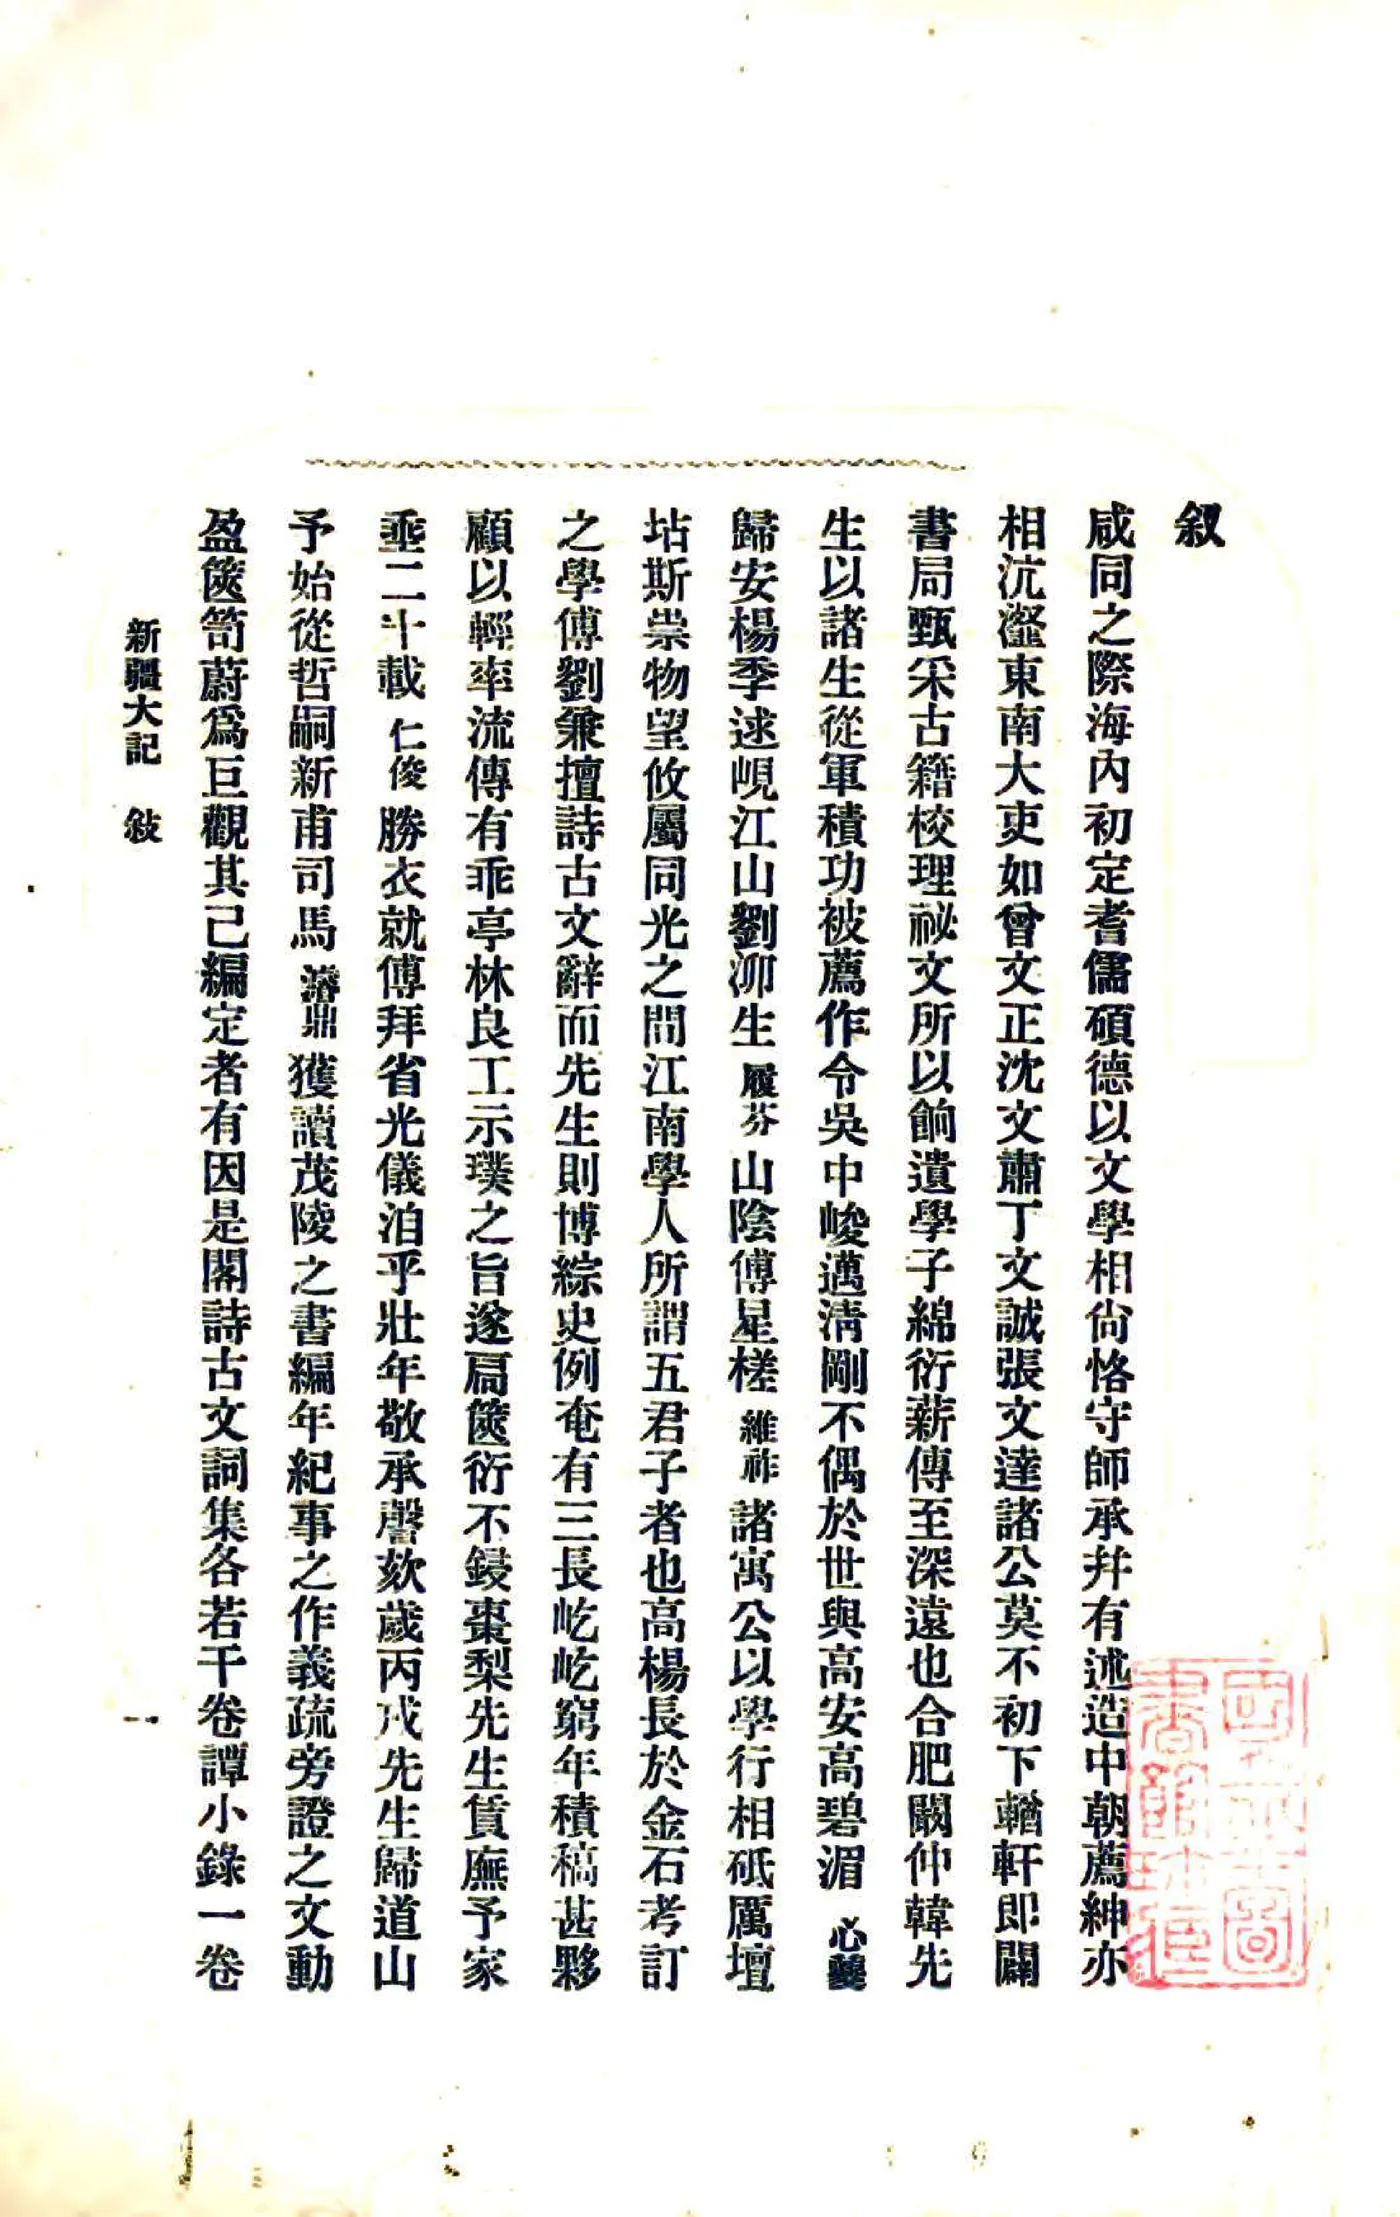 叙
咸同之際海內初定耆儒碩德以文學相尙恪守師承幷有述造中朝薦紳亦
相沆瀣東南大吏如曾文正沈文肅丁文誠張文達諸公莫不初下輶軒即闢
書局甄采古籍校理祕文所以餉遺學子綿衍薪傳至深遠也合肥闞仲韓先
生以諸生從軍積功被薦作令吳中峻邁淸剛不偶於世與高安高碧湄心夔
歸安楊季逑峴江山劉泖生履芬山陰傅星槎維祚諸寓公以學行相砥厲壇
坫斯崇物望攸屬同光之間江南學人所謂五君子者也高楊長於金石考訂
之學傅劉兼擅詩古文辭而先生則博綜史例奄有三長屹屹窮年積稿甚夥
顧以輕率流傳有乖亭林良工示璞之旨遂扃篋衍不鋟棗梨先生賃廡予家
垂二十載仁俊勝衣就傅拜省光儀洎乎壯年敬承謦欬歲丙戌先生歸道山
予始從哲嗣新甫司馬濬鼎獲讀茂陵之書編年紀事之作義疏旁證之文動
盈篋笥蔚爲巨觀其已編定者有因是閣詩古文詞集各若干卷譚小錄一卷
新疆大記 敍 一